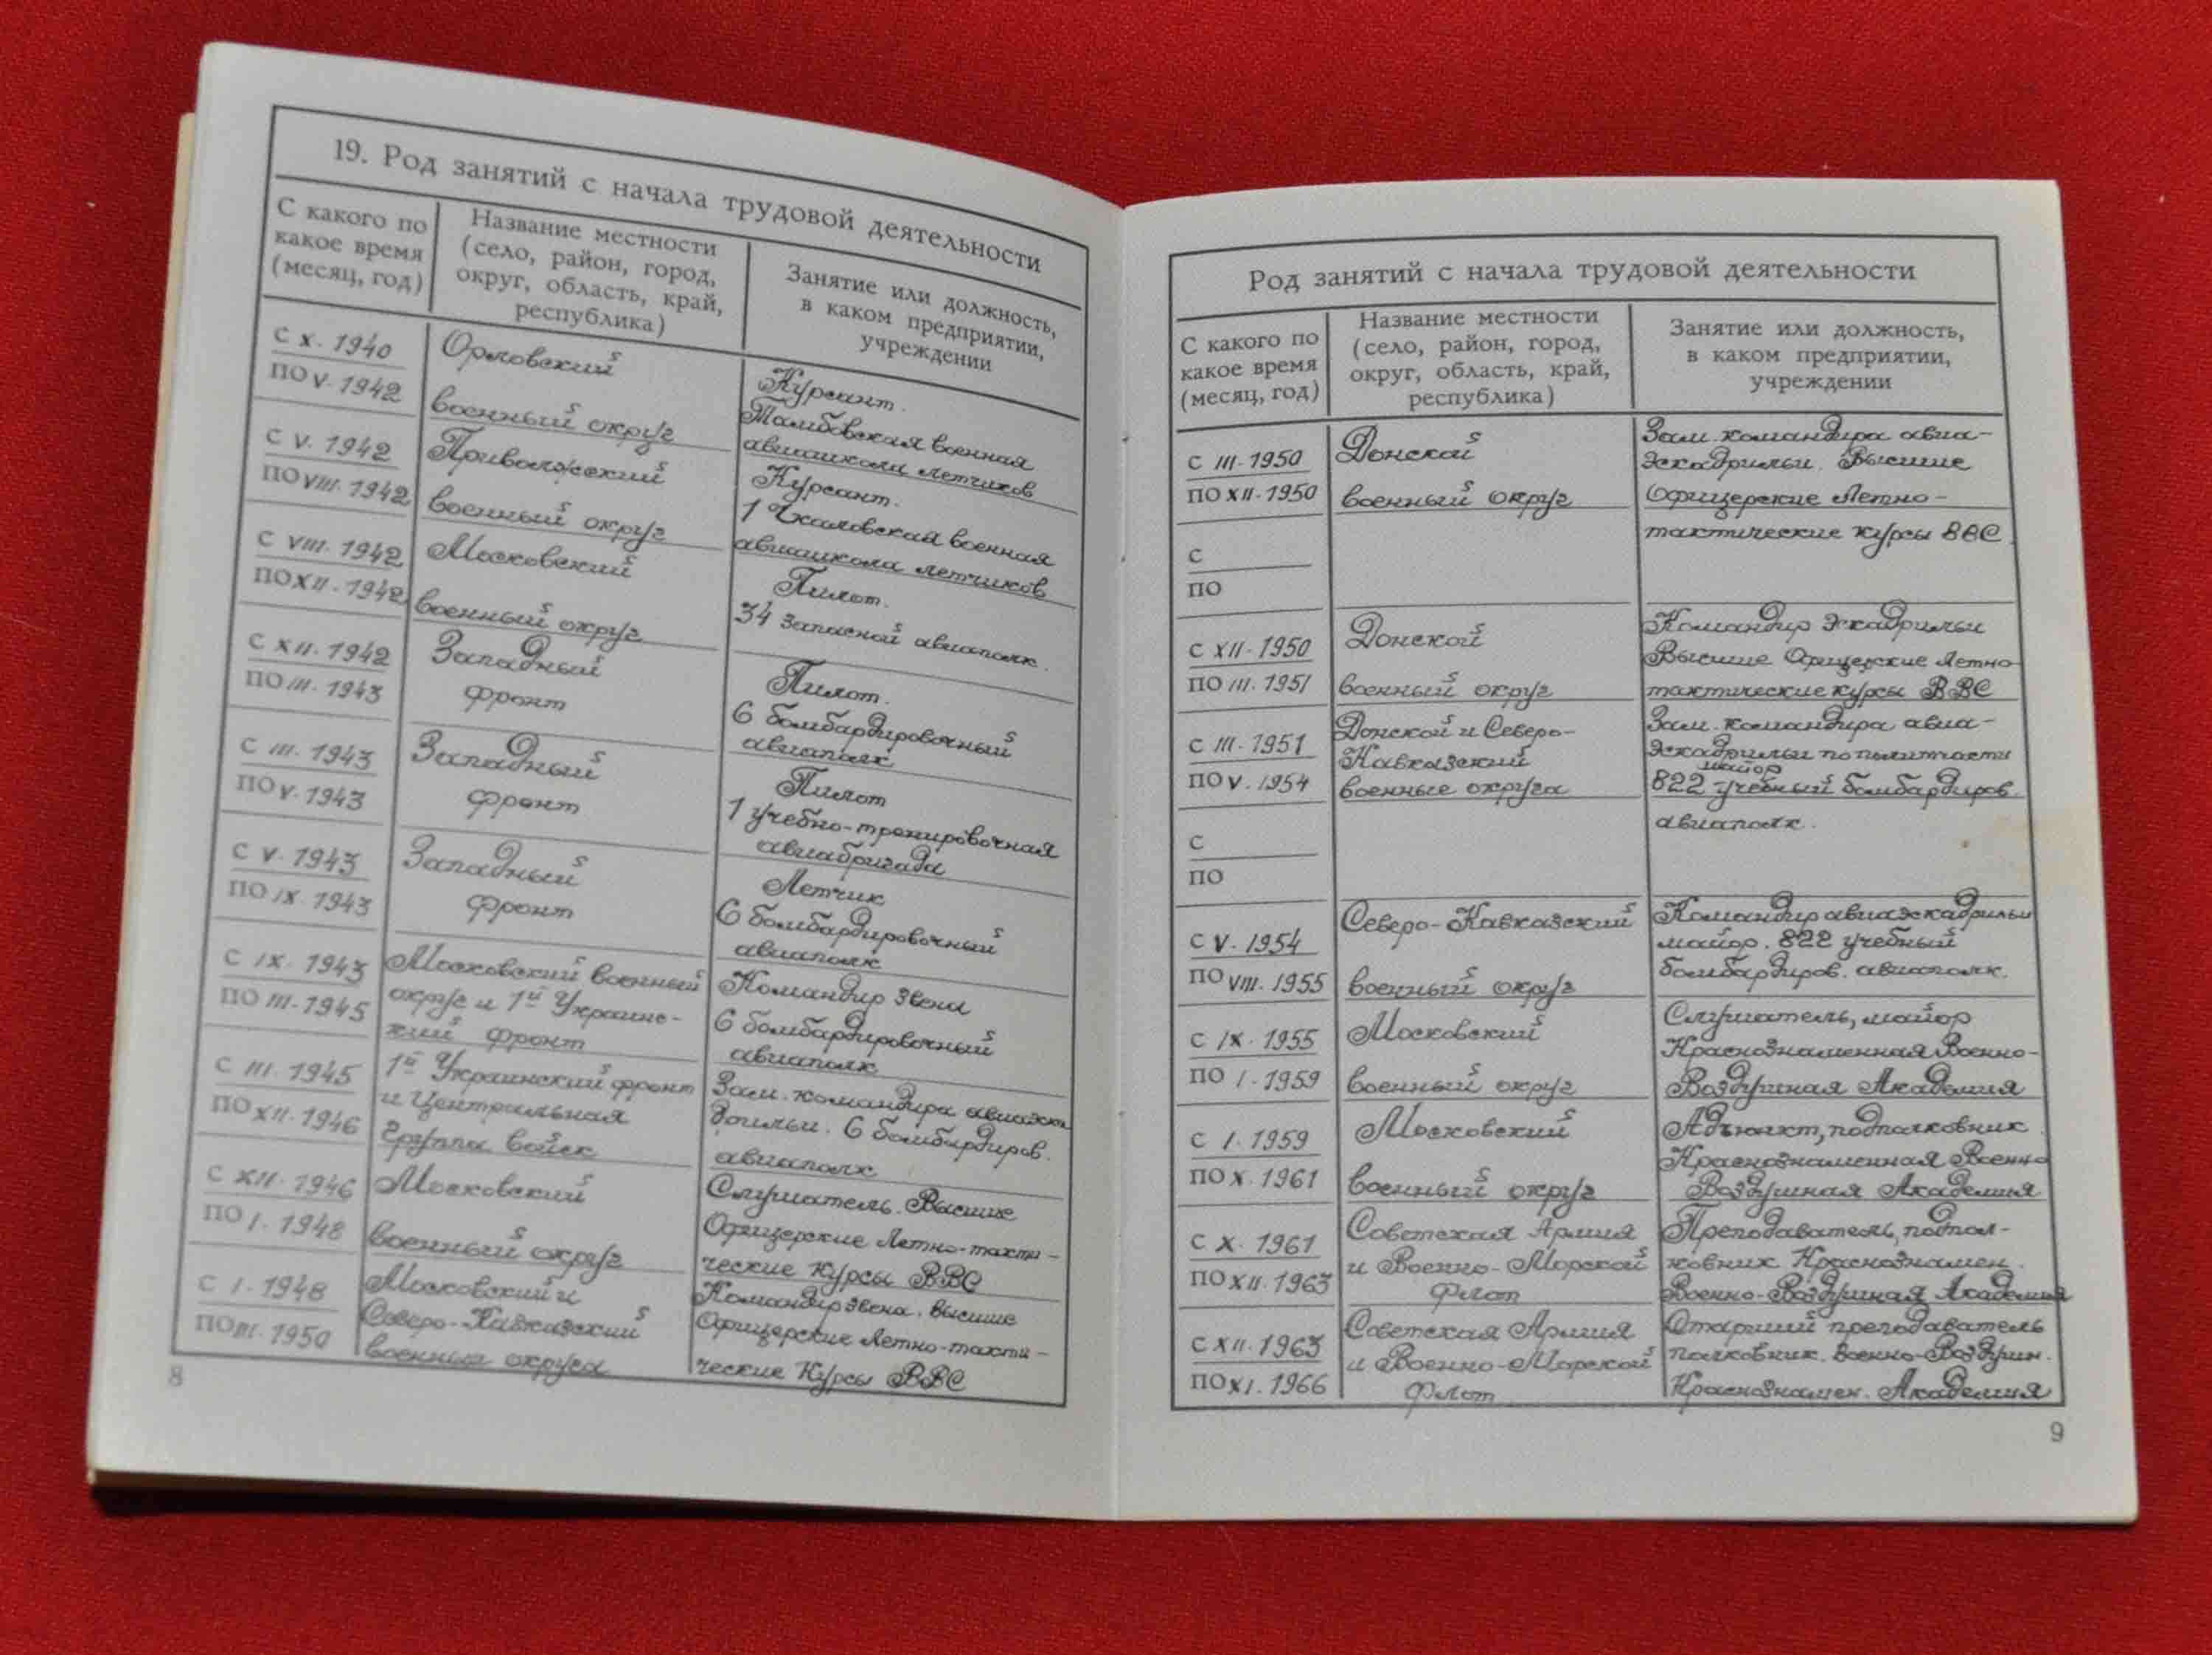 19. Род занятий с начала трудовой деятельности
С какого по
какое время
(месяц, год)
Название местности
(село, район, город,
округ, область, край,
республика)
Занятие или должность,
в каком предприятии,
учреждении
С X. 1940
ПО V. 1942
Орловский
военный округ
Курсант.
Тамбовская военная
авиашкола летчиков
С V. 1942
ПО VIII. 1942
Приволжский
военный округ
Курсант.
1 Чкаловская военная
авиашкола летчиков
С VIII. 1942
ПО XII. 1942
Московский
военный округ
Пилот.
34 запасной авиаполк.
С XII. 1942
ПО III. 1943
Западный
фронт
Пилот.
6 бомбардировочный
авиаполк
С III. 1943
ПО V. 1943
Западный
фронт
Пилот
1 учебно-тренировочная
авиабригада
С V. 1943
ПО IX. 1943
Западный
фронт
Летчик
6 бомбардировочный
авиаполк
С IX. 1943
ПО III. 1945
Московский военный
округ и 1й Украинс-
кий фронт
Командир звена
6 бомбардировочный
авиаполк
С III. 1945
ПО XII. 1946
1й Украинский фронт
и Центральная
группа войск
Зам. командира авиаэска
дрильи. 6 бомбардиров.
авиаполк
С XII. 1946
ПО I. 1948
Московский
военный округ
Слушатель. Высшие
Офицерские Летно-такти-
ческие Курсы ВВС
С I. 1948
ПО III. 1950
Московский и
Северо-Кавказский
военные округа
Командир звена. Высшие
Офицерские Летно-такти-
ческие Курсы ВВС
8
Род занятий с начала трудовой деятельности
С какого по
какое время
(месяц, год)
Название местности
(село, район, город,
округ, область, край,
республика)
Занятие или должность,
в каком предприятии,
учреждении
С III. 1950
ПО XII. 1950
Донской
военный округ
Зам. командира авиа-
эскадрильи. Высшие
Офицерские Летно-
тактические курсы ВВС.
С
ПО
С XII. 1950
ПО III. 1951
Донской
военный округ
Командир эскадрильи
Высшие Офицерские Летно-
тактические курсы ВВС
С III. 1951
ПО V. 1954
Донской и Северо-
Кавказский
военные округа
Зам. командира авиа-
эскадрильи по политчасти
майор
822 учебный бомбардиров.
авиаполк.
С
ПО
С V. 1954
ПО VIII. 1955
Северо-Кавказский
военный округ
Командир авиаэскадрильи
майор. 822 учебный
бомбардиров. авиаполк.
С IX. 1955
ПО I. 1959
Московский
военный округ
Слушатель, майор
Краснознаменная Военно-
Воздушная Академия
С I. 1959
ПО X. 1961
Московский
военный округ
Адъюнкт, подполковник.
Краснознаменная Военно
Воздушная Академия
С X. 1961
ПО XII. 1963
Советская Армия
и Военно-Морской
Флот
Преподаватель, подпол-
ковник Краснознамен.
Военно-Воздушная Академия
С XII. 1963
ПО XI. 1966
Советская Армия
и Военно-Морской
Флот
Старший преподаватель
полковник. Военно-Воздушн.
Краснознамен. Академия
9